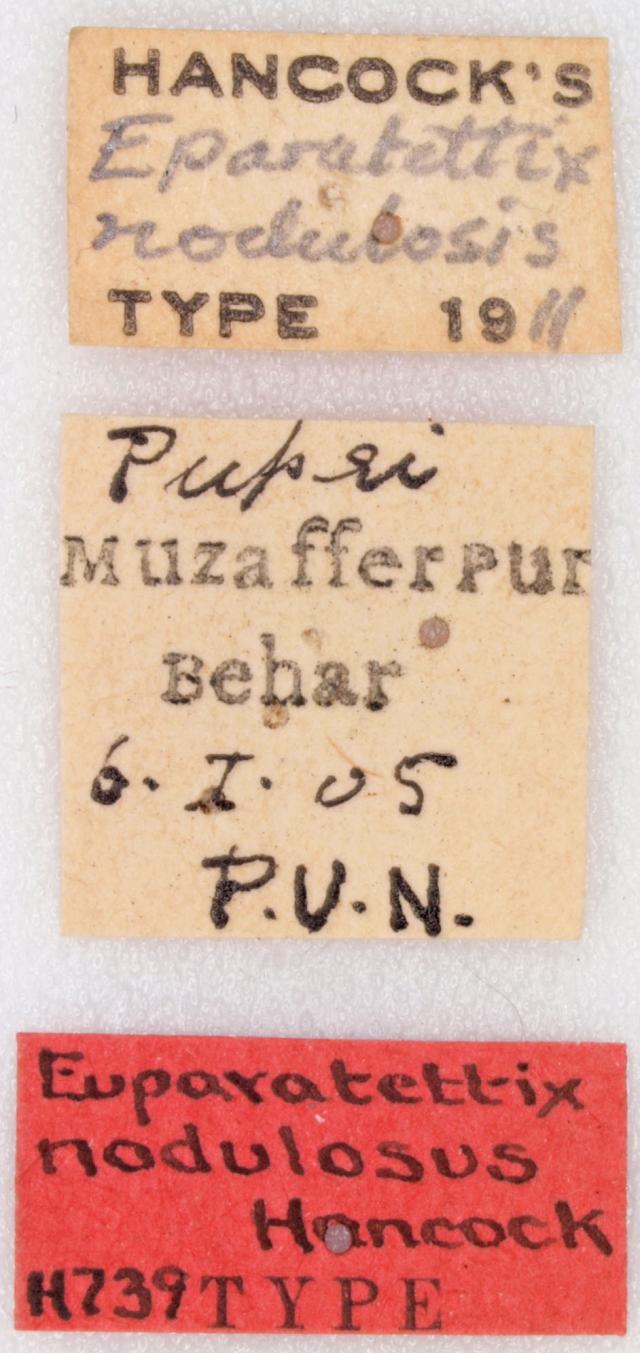 HANCOCK'S
Eparatettix
nodulosis
TYPE 1911
Pupri
Muzafferpur
Behar
6. I. 05
P.V.N.
Euparatettix
nodulosus
Hancock
H739 TYPE